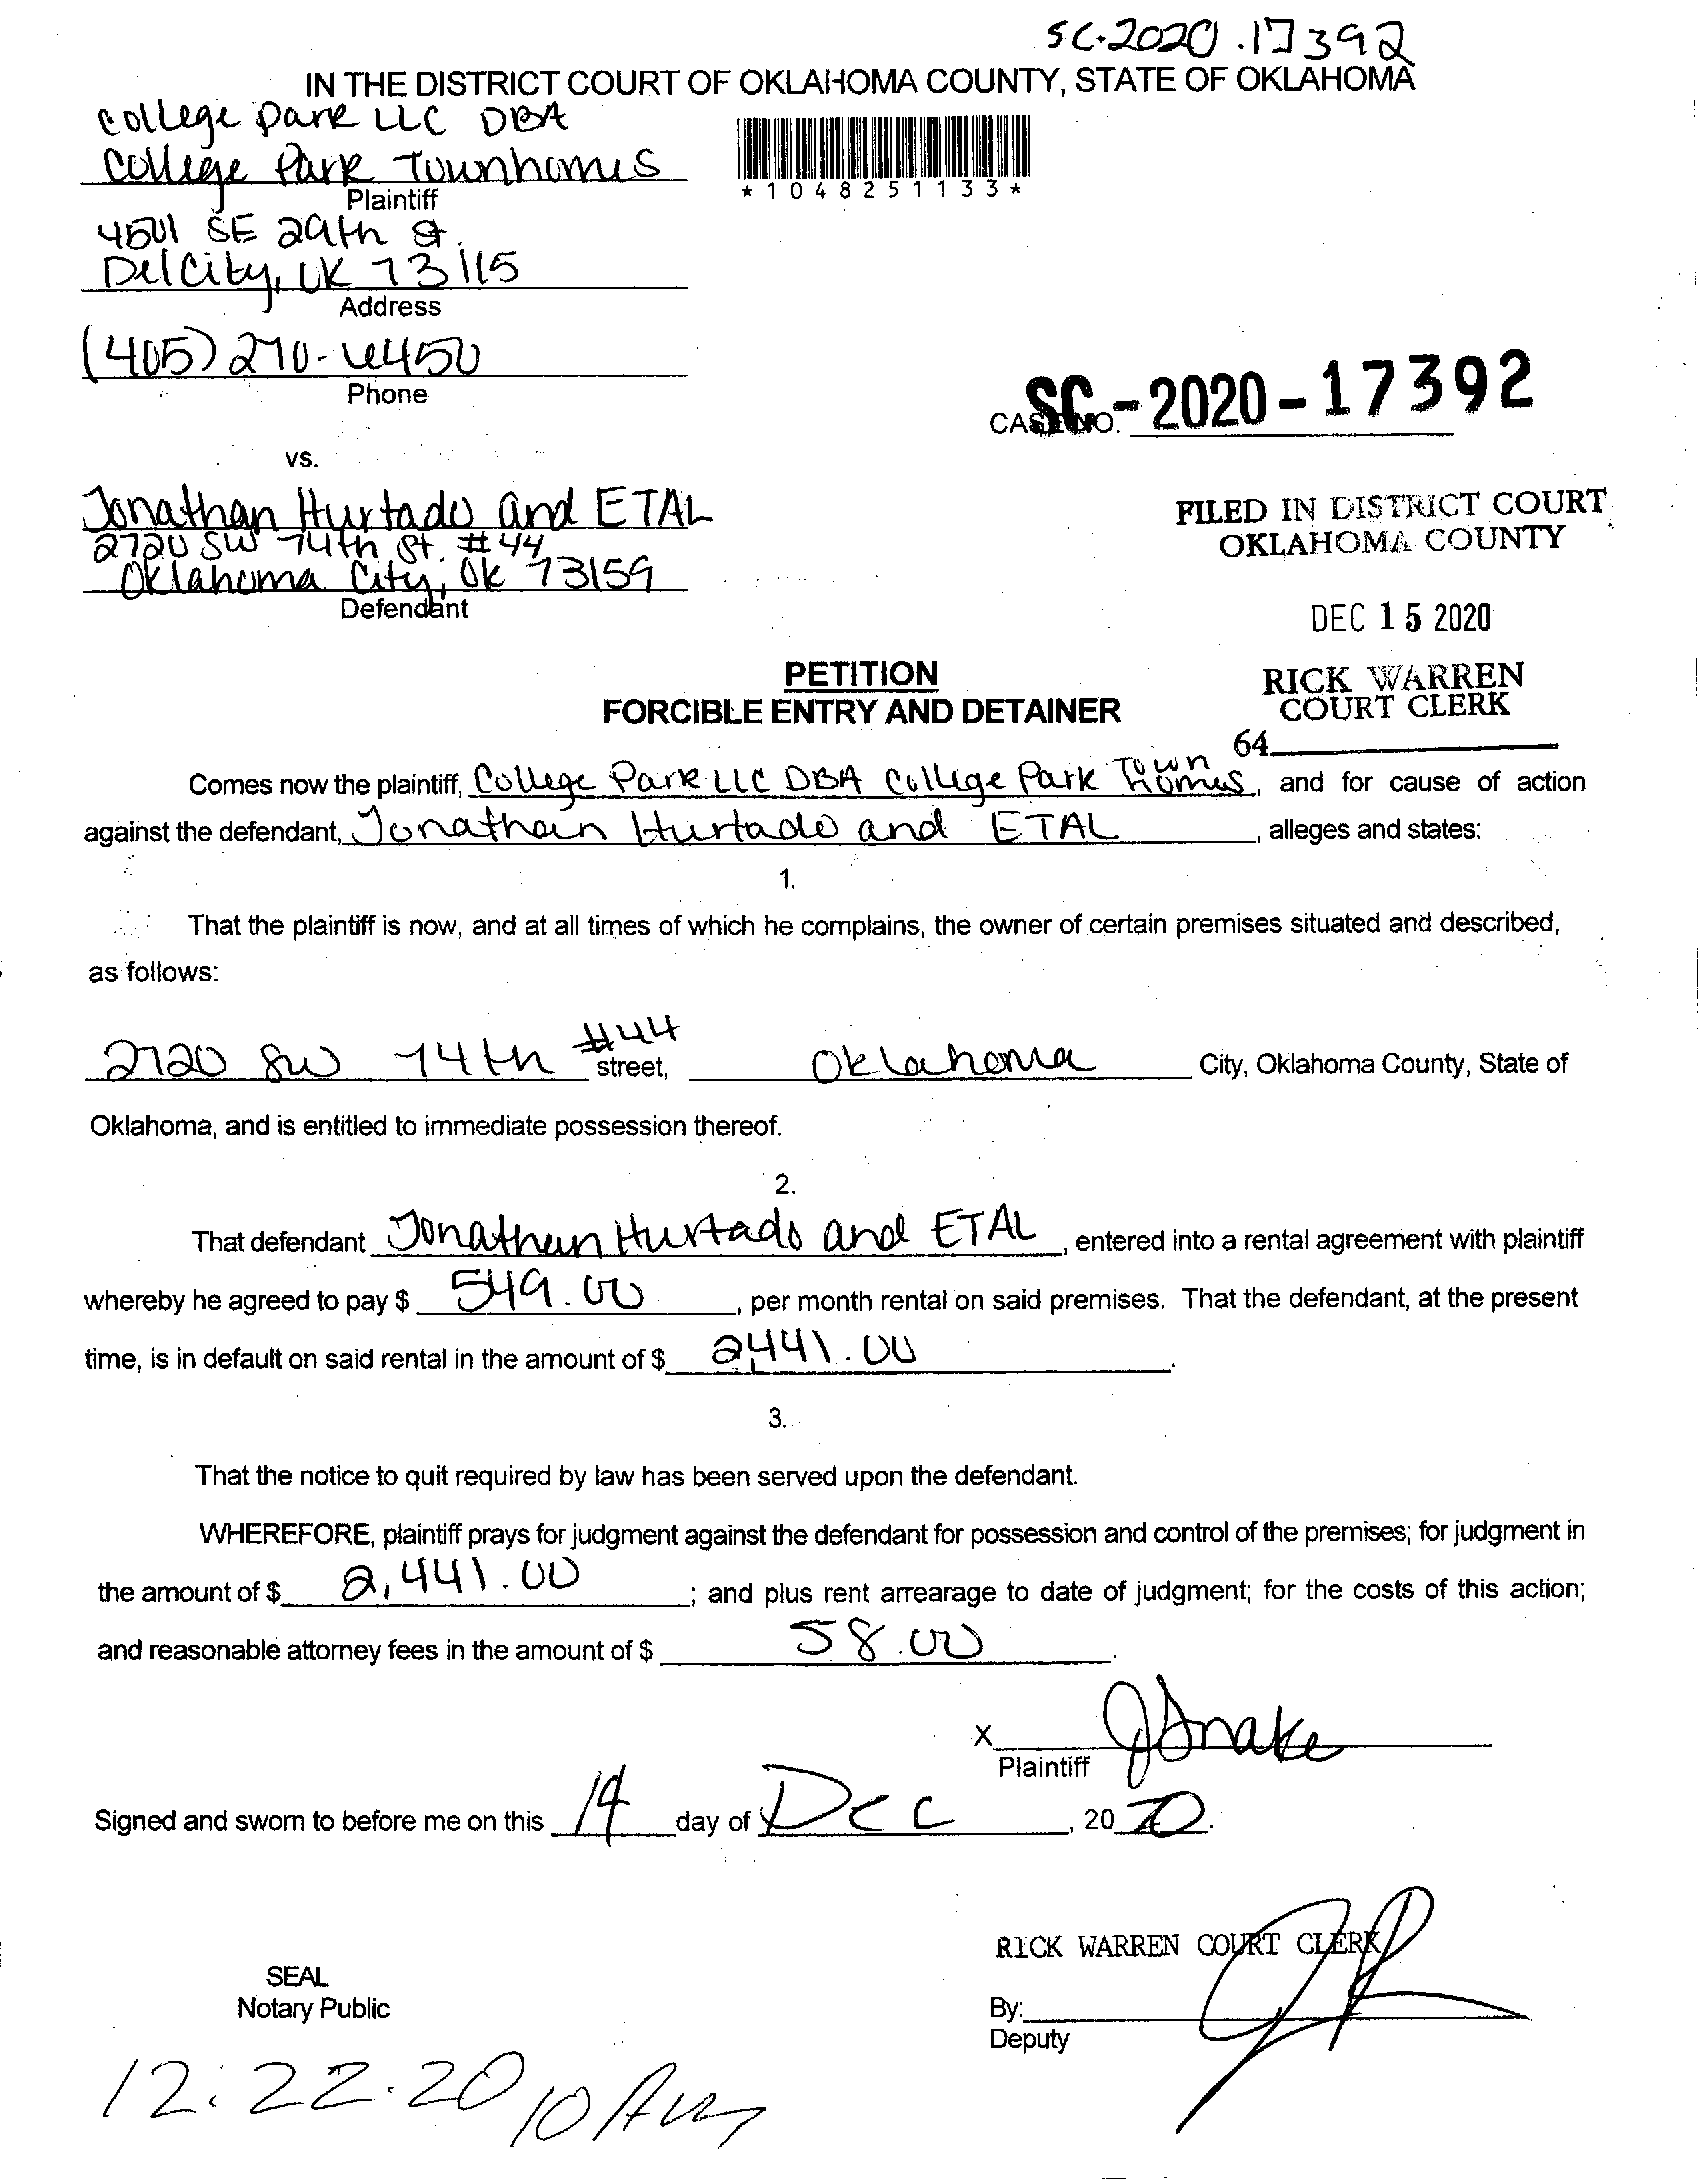 SC-2020-17392
IN THE DISTRICT COURT OF OKLAHOMA COUNTY, STATE OF OKLAHOMA
College Park LLC DBA
College Park Townhomes
Plaintiff
*1048251133*
4501 SE 29th St.
Del City, OK 73115
Address
(405) 270-6450
Phone
CASE NO. SC-2020-17392
vs.
Jonathan Hurtado and ETAL
2720 SW 74th St. #44
Oklahoma City, Ok 73159
Defendant
FILED IN DISTRICT COURT
OKLAHOMA COUNTY
DEC 15 2020
RICK WARREN
COURT CLERK
64
PETITION
FORCIBLE ENTRY AND DETAINER
Comes now the plaintiff, College Park LLC DBA College Park Town Homes, and for cause of action
against the defendant, Jonathan Hurtado and ETAL, alleges and states:
1.
That the plaintiff is now, and at all times of which he complains, the owner of certain premises situated and described,
as follows:
2720 SW 74th #44 street, Oklahoma City, Oklahoma County, State of
Oklahoma, and is entitled to immediate possession thereof.
2.
That defendant Jonathan Hurtado and ETAL, entered into a rental agreement with plaintiff
whereby he agreed to pay $ 549.00, per month rental on said premises. That the defendant, at the present
time, is in default on said rental in the amount of $ 2,441.00.
3.
That the notice to quit required by law has been served upon the defendant.
WHEREFORE, plaintiff prays for judgment against the defendant for possession and control of the premises; for judgment in
the amount of $ 2,441.00; and plus rent arrearage to date of judgment; for the costs of this action;
and reasonable attorney fees in the amount of $ 58.00.
X JSnake
Plaintiff
Signed and sworn to before me on this 14 day of Dec, 2020.
RICK WARREN COURT CLERK
SEAL
Notary Public
By:
Deputy
12.22.20 10 Am